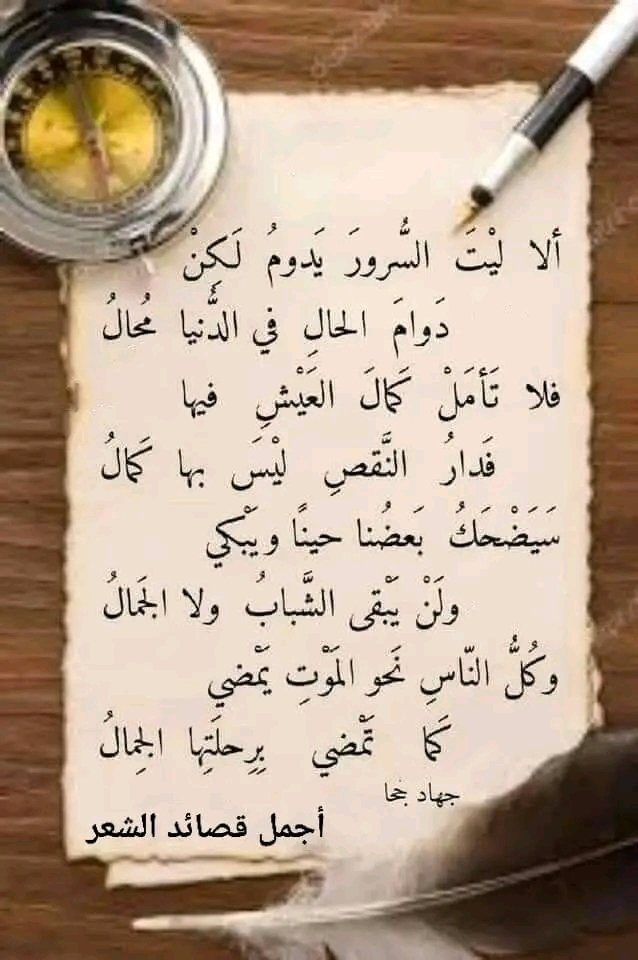 ألا لَيْتَ السُّرورَ يَدومُ لَكِنْ
دَوامَ الحالِ في الدُّنيا مُحالُ
فلا تَأمَلْ كَمالَ العَيْشِ فيها
فَدارُ النَّقصِ لَيْسَ بها كَمالُ
سَيَضْحَكُ بَعضُنا حينًا ويَبْكي
ولَنْ يَبْقى الشَّبابُ ولا الجَمالُ
وكُلُّ النّاسِ نَحو المَوْتِ يَمْضي
كَما تَمْضي بِرِحلَتِها الجِمالُ
جهاد جحا
أجمل قصائد الشعر